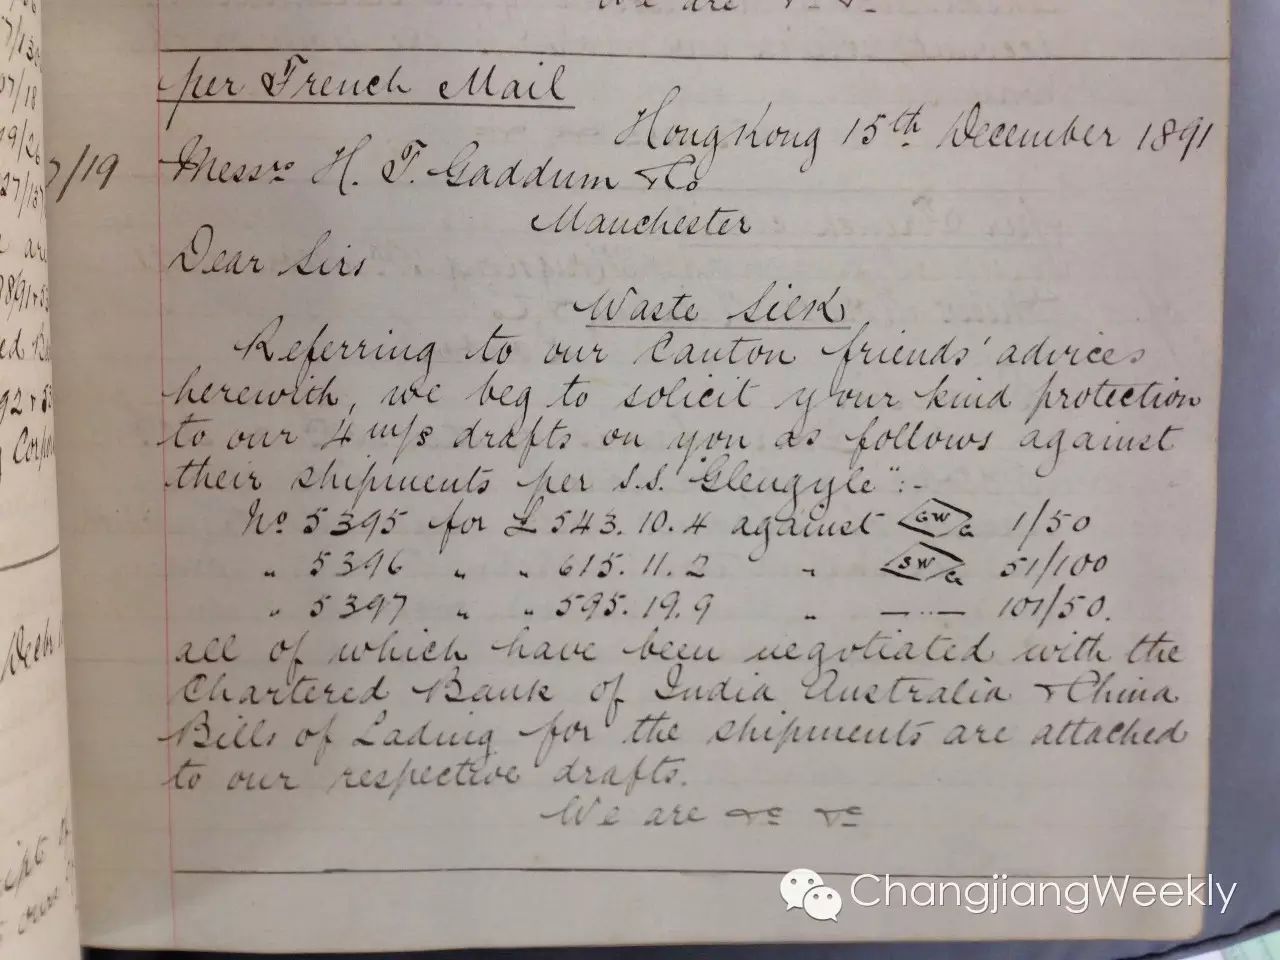 We are &c &c
per French Mail
HongKong 15th December 1891
7/19
Messrs H. T. Gaddum & Co
Manchester
Dear Sirs
Waste Silk
Referring to our Canton friends' advices
herewith, we beg to solicit your kind protection
to our 4 m/s drafts on you as follows against
their shipments per s.s. "Glengyle":-
No 5395 for £ 543.10.4 against GW Co 1/50
" 5396 " " 615.11.2 " SW Co 51/100
" 5397 " " 595.19.9 " —"— 101/50.
all of which have been negotiated with the
Chartered Bank of India Australia & China
Bills of Lading for the shipments are attached
to our respective drafts.
We are &c &c
ChangjiangWeekly